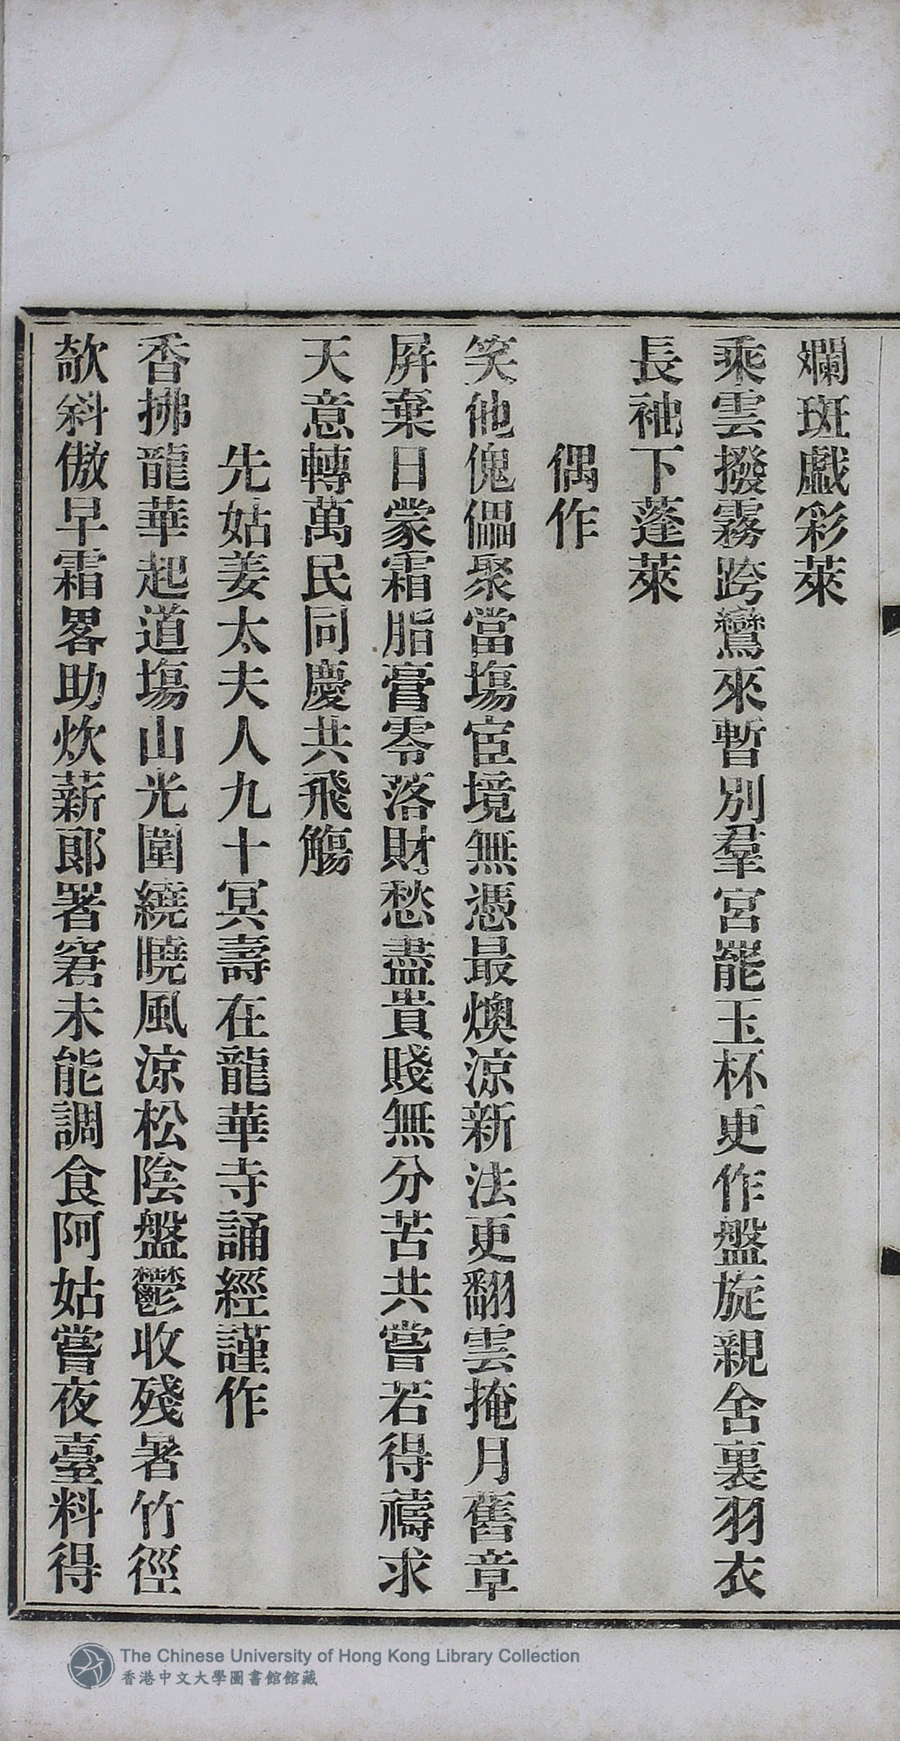 爛斑戲彩萊
乘雲撥霧跨鸞來暫別羣宮罷玉杯更作盤旋親舍裏羽衣
長袖下蓬萊
偶作
笑他傀儡聚當塲宦境無憑最燠涼新法更翻雲掩月舊章
屏棄日蒙霜脂膏零落財愁盡貴賤無分苦共嘗若得禱求
天意轉萬民同慶共飛觴
先姑姜太夫人九十冥壽在龍華寺誦經謹作
香拂龍華起道塲山光圍繞曉風涼松陰盤鬱收殘暑竹徑
欹斜傲早霜畧助炊薪郎署窘未能調食阿姑嘗夜臺料得
The Chinese University of Hong Kong Library Collection
香港中文大學圖書館館藏